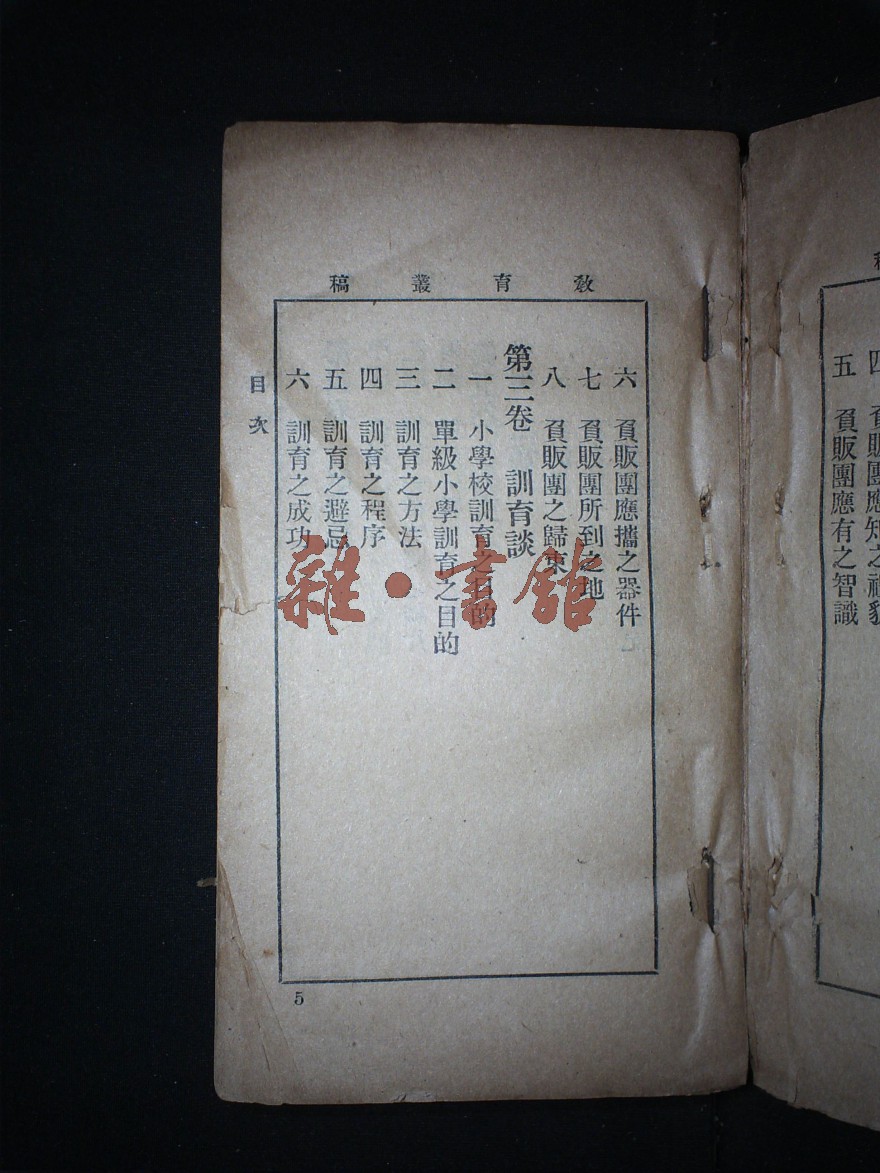 教育叢稿
六　負販團應攜之器件
七　負販團所到之地
八　負販團之歸束
第三卷　訓育談
一　小學校訓育之目的
二　單級小學訓育之目的
三　訓育之方法
四　訓育之程序
五　訓育之避忌
六　訓育之成功
目次
5
雜·書館
四　負販團應知之禮貌
五　負販團應有之智識